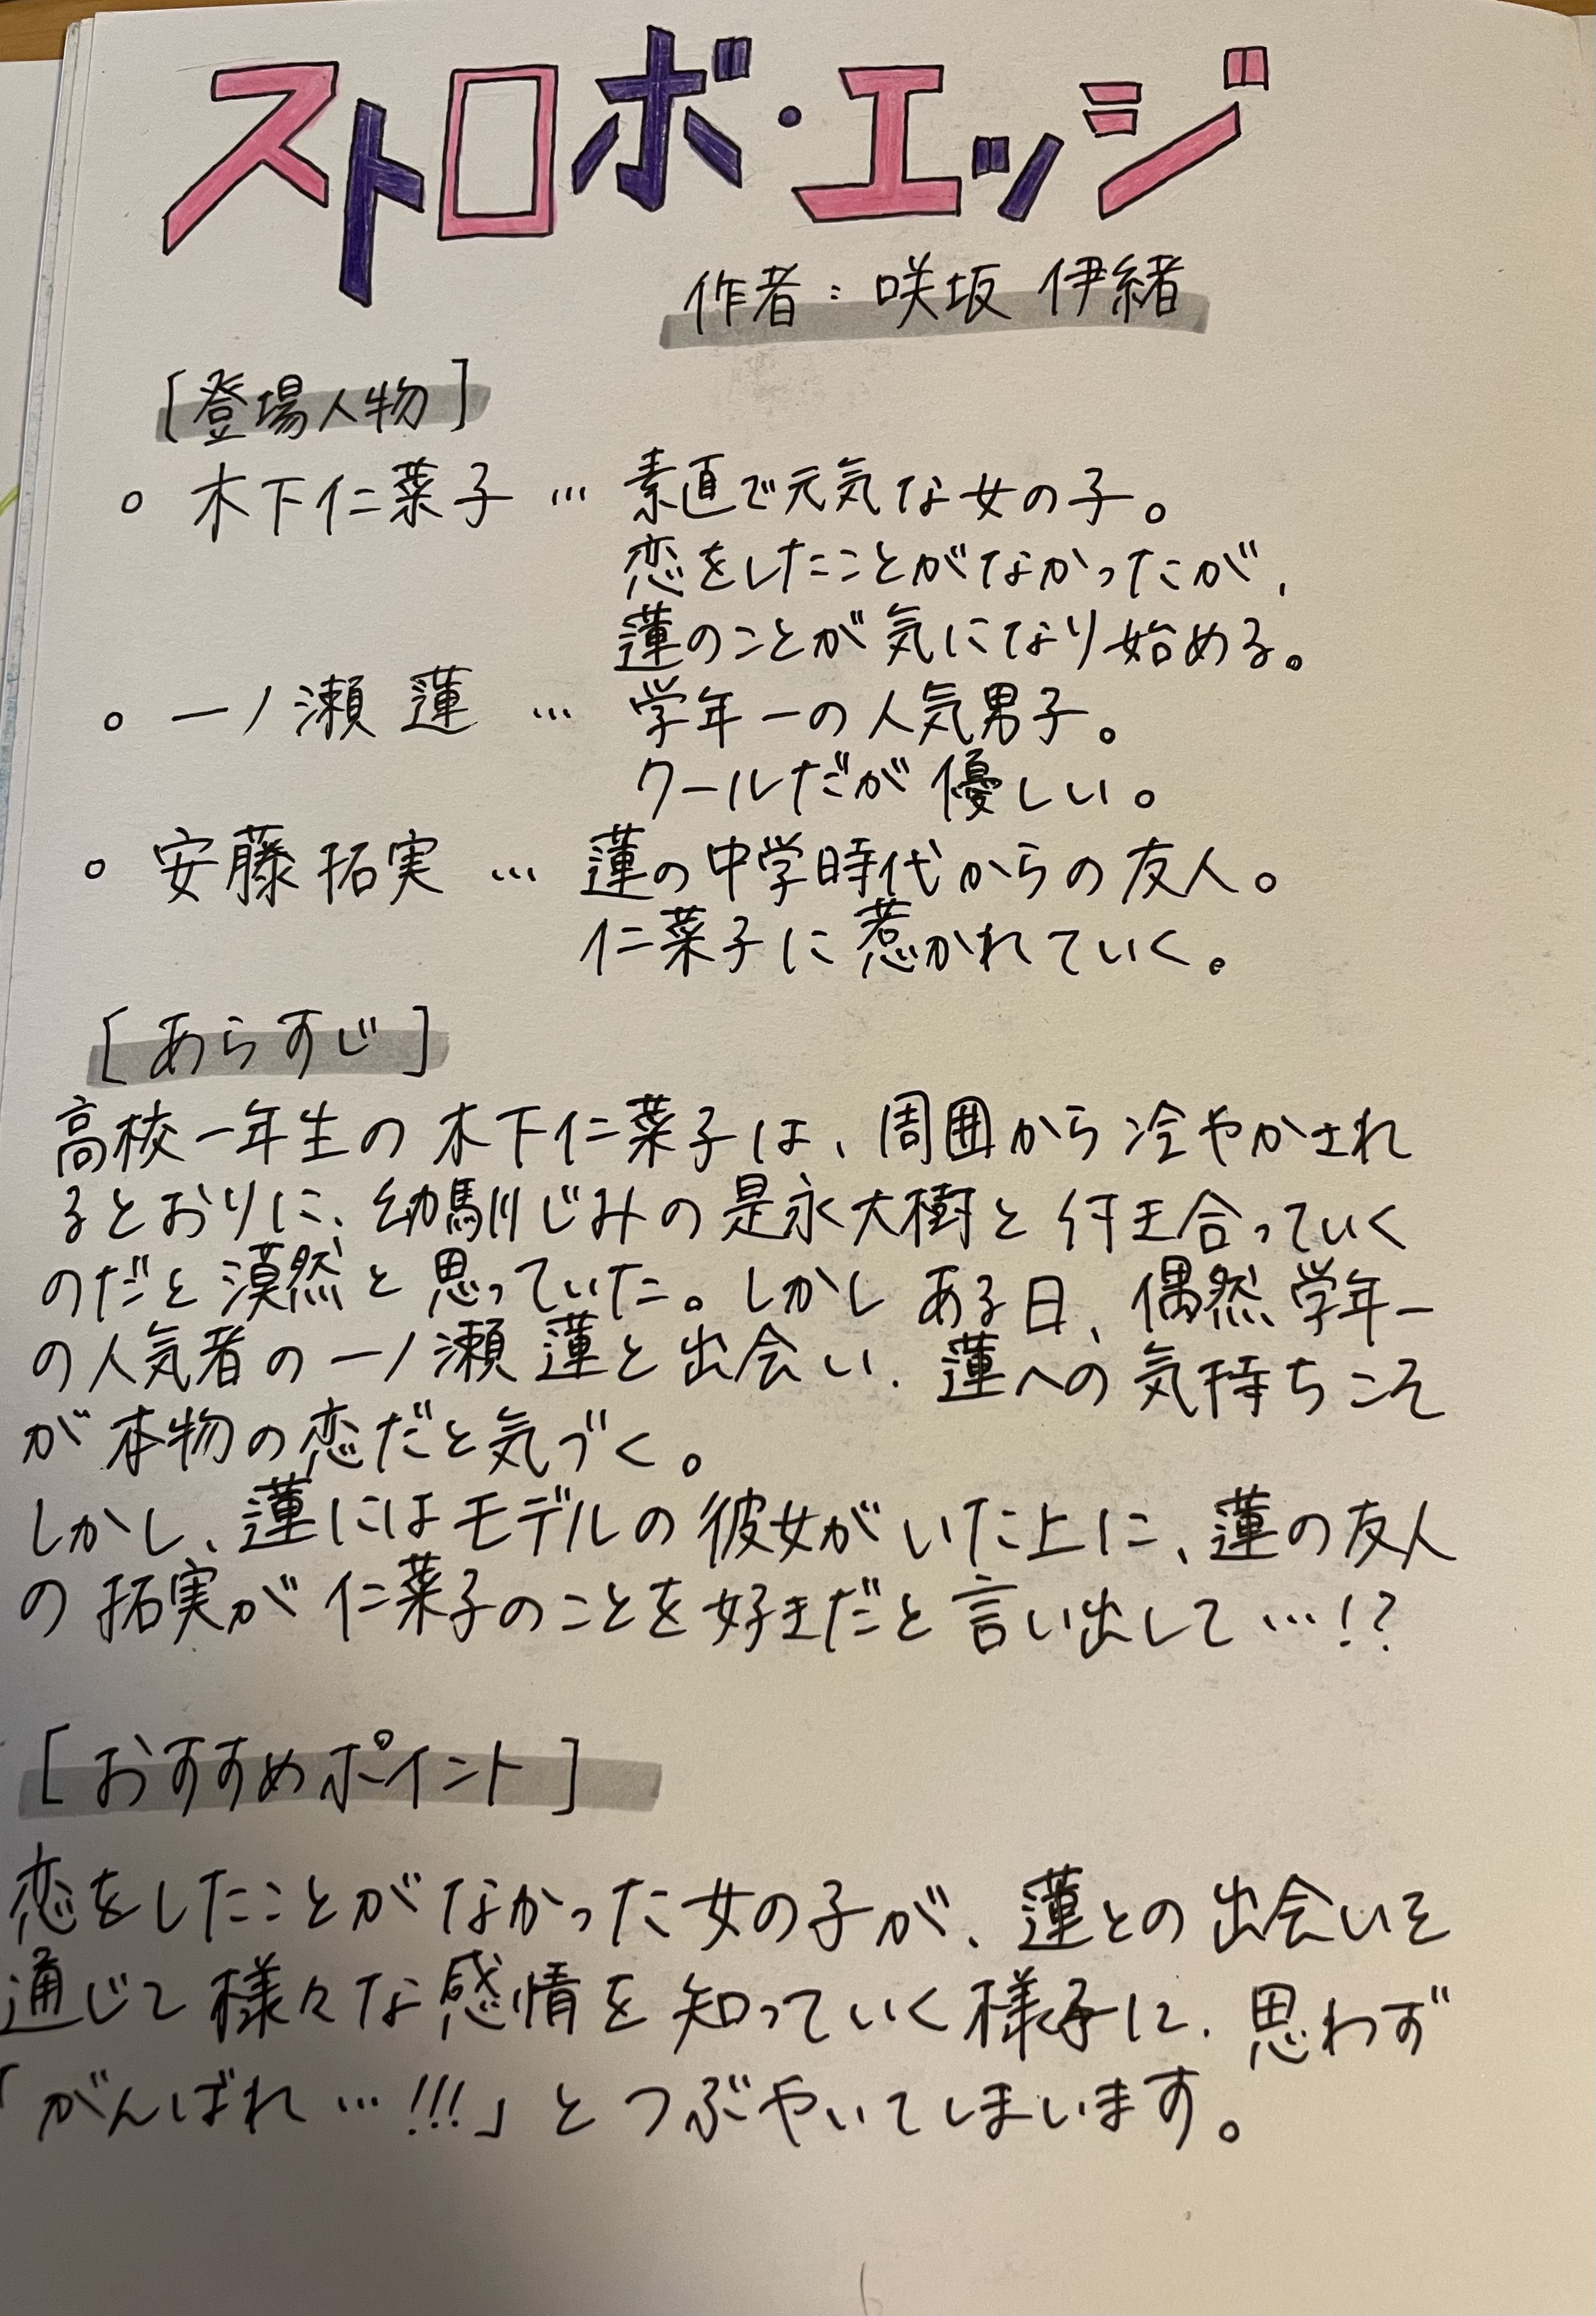 ストロボ・エッジ
作者：咲坂 伊緒
[登場人物]
○ 木下仁菜子 … 素直で元気な女の子。
恋をしたことがなかったが、
蓮のことが気になり始める。
○ 一ノ瀬 蓮 … 学年一の人気男子。
クールだが優しい。
○ 安藤拓実 … 蓮の中学時代からの友人。
仁菜子に惹かれていく。
[あらすじ]
高校一年生の木下仁菜子は、周囲から冷やかされ
るとおりに、幼馴じみの是永大樹と付き合っていく
のだと漠然と思っていた。しかしある日、偶然学年一
の人気者の一ノ瀬 蓮と出会い、蓮への気持ちこそ
が本物の恋だと気づく。
しかし、蓮にはモデルの彼女がいた上に、蓮の友人
の拓実が仁菜子のことを好きだと言い出して…!?
[おすすめポイント]
恋をしたことがなかった女の子が、蓮との出会いを
通じて様々な感情を知っていく様子に、思わず
「がんばれ…!!!」とつぶやいてしまいます。